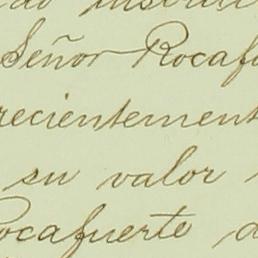 Señor Rocaf
recientement
su valor
Rocafuerte